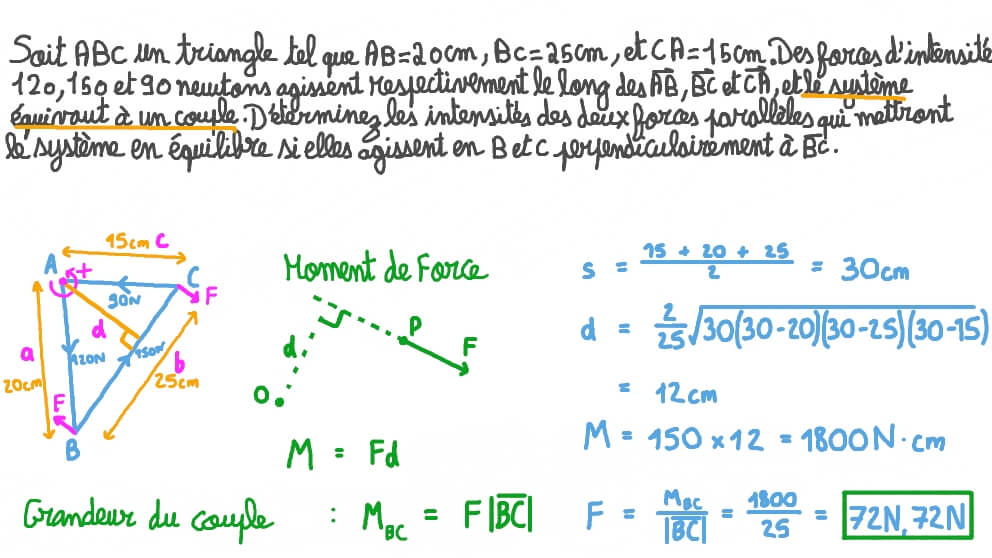 Soit ABC un triangle tel que AB=20cm, BC=25cm, et CA=15cm. Des forces d'intensité
120, 150 et 90 newtons agissent respectivement le long des AB, BC et CA, et le système
équivaut à un couple. Déterminez les intensités des deux forces parallèles qui mettront
le système en équilibre si elles agissent en B et C perpendiculairement à BC.
15cm C
A + C
90N F
d
a 120N 150N b
20cm 25cm
F
B
Moment de Force
d P F
O
M = Fd
s = 15 + 20 + 25 / 2 = 30cm
d = 2/25 √30(30-20)(30-25)(30-15)
= 12cm
M = 150 × 12 = 1800 N · cm
Grandeur du couple : M_BC = F |BC|
F = M_BC / |BC| = 1800 / 25 = 72N, 72N